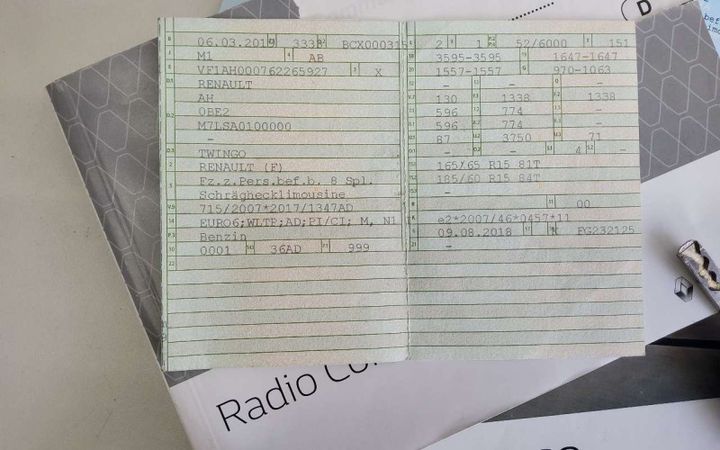 D
06.03.2019 3333 BCX000315
M1 AB
VF1AH000762265927 X
RENAULT
AH
0BE2
M7LSA0100000
-
TWINGO
RENAULT (F)
Fz.z.Pers.bef.b. 8 Spl.
Schräghecklimousine
715/2007*2017/1347AD
EURO6;WLTP;AD;PI/CI; M, N1 I
Benzin
0001 36AD 999
2 1 52/6000 151
3595-3595 1647-1647
1557-1557 970-1063
- - -
130 1338 1338
596 774 -
596 774 -
87 3750 71
- - 4 -
165/65 R15 81T
185/60 R15 84T
-
- 00
e2*2007/46*0457*11
09.08.2018 K FG232125
-
Radio Co